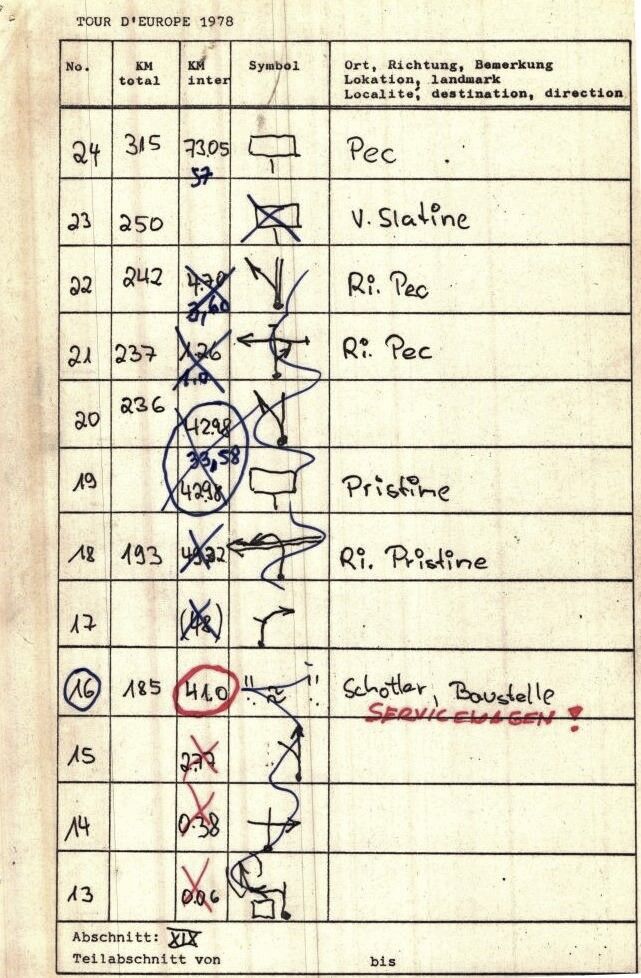 TOUR D'EUROPE 1978
No. KM total KM inter Symbol Ort, Richtung, Bemerkung
Lokation, landmark
Localité, destination, direction
24 315 73.05 Pec
57
23 250 V. Slatine
22 242 4.70 Ri. Pec
3,60
21 237 1.26 Ri. Pec
1.0
20 236 42.98
33,58
19 42.98 Pristine
18 193 Ri. Pristine
17 (48)
16 185 4.10 Schotter, Baustelle
SERVICEWAGEN!
15 2.77
14 0.38
13 0.06
Abschnitt: XIX
Teilabschnitt von bis